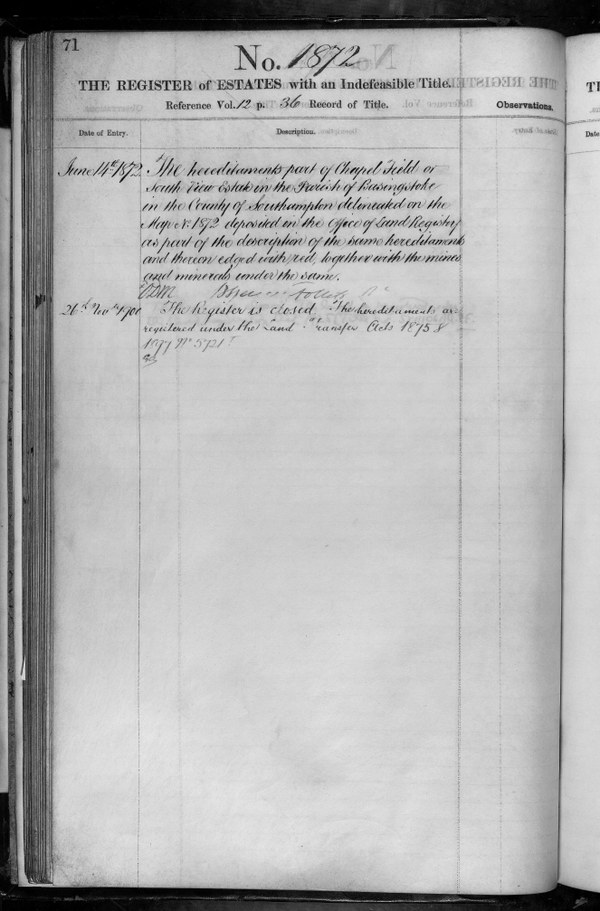 71
No. 1872
THE REGISTER of ESTATES with an Indefeasible Title.
Reference Vol. 12 p. 36 Record of Title.
Observations.
Date of Entry.
Description.
June 14th 1872
The hereditaments part of Chapel Field or
South View Estate in the Parish of Basingstoke
in the County of Southampton delineated on the
Map No 1872 deposited in the Office of Land Registry
as part of the description of the same hereditaments
and thereon edged with red, together with the mines
and minerals under the same.
26th Novr 1900
The Register is closed The hereditaments are
registered under the Land Transfer Acts 1875 &
TH
Date